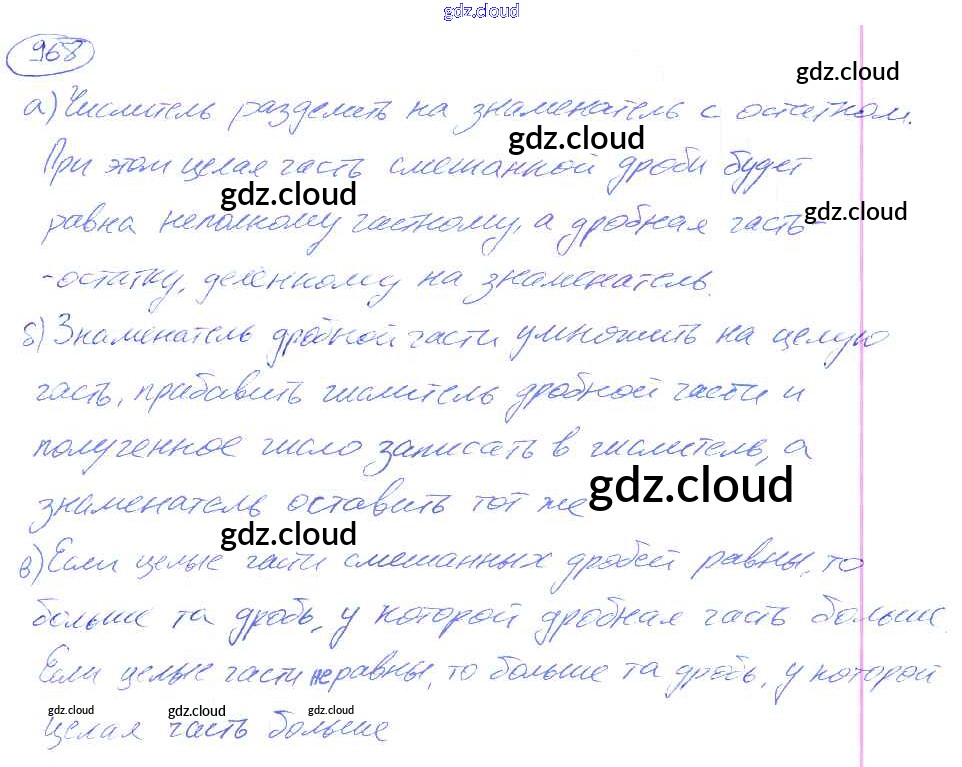 gdz.cloud
968
gdz.cloud
а) Числитель разделить на знаменатель с остатком.
gdz.cloud
При этом целая часть смешанной дроби будет
gdz.cloud
gdz.cloud
равна неполному частному, а дробная часть -
- остатку, деленному на знаменатель.
б) Знаменатель дробной части умножить на целую
часть, прибавить числитель дробной части и
полученное число записать в числитель, а
gdz.cloud
знаменатель оставить тот же
gdz.cloud
в) Если целые части смешанных дробей равны, то
больше та дробь, у которой дробная часть больше.
Если целые части не равны, то больше та дробь, у которой
gdz.cloud gdz.cloud gdz.cloud
целая часть больше